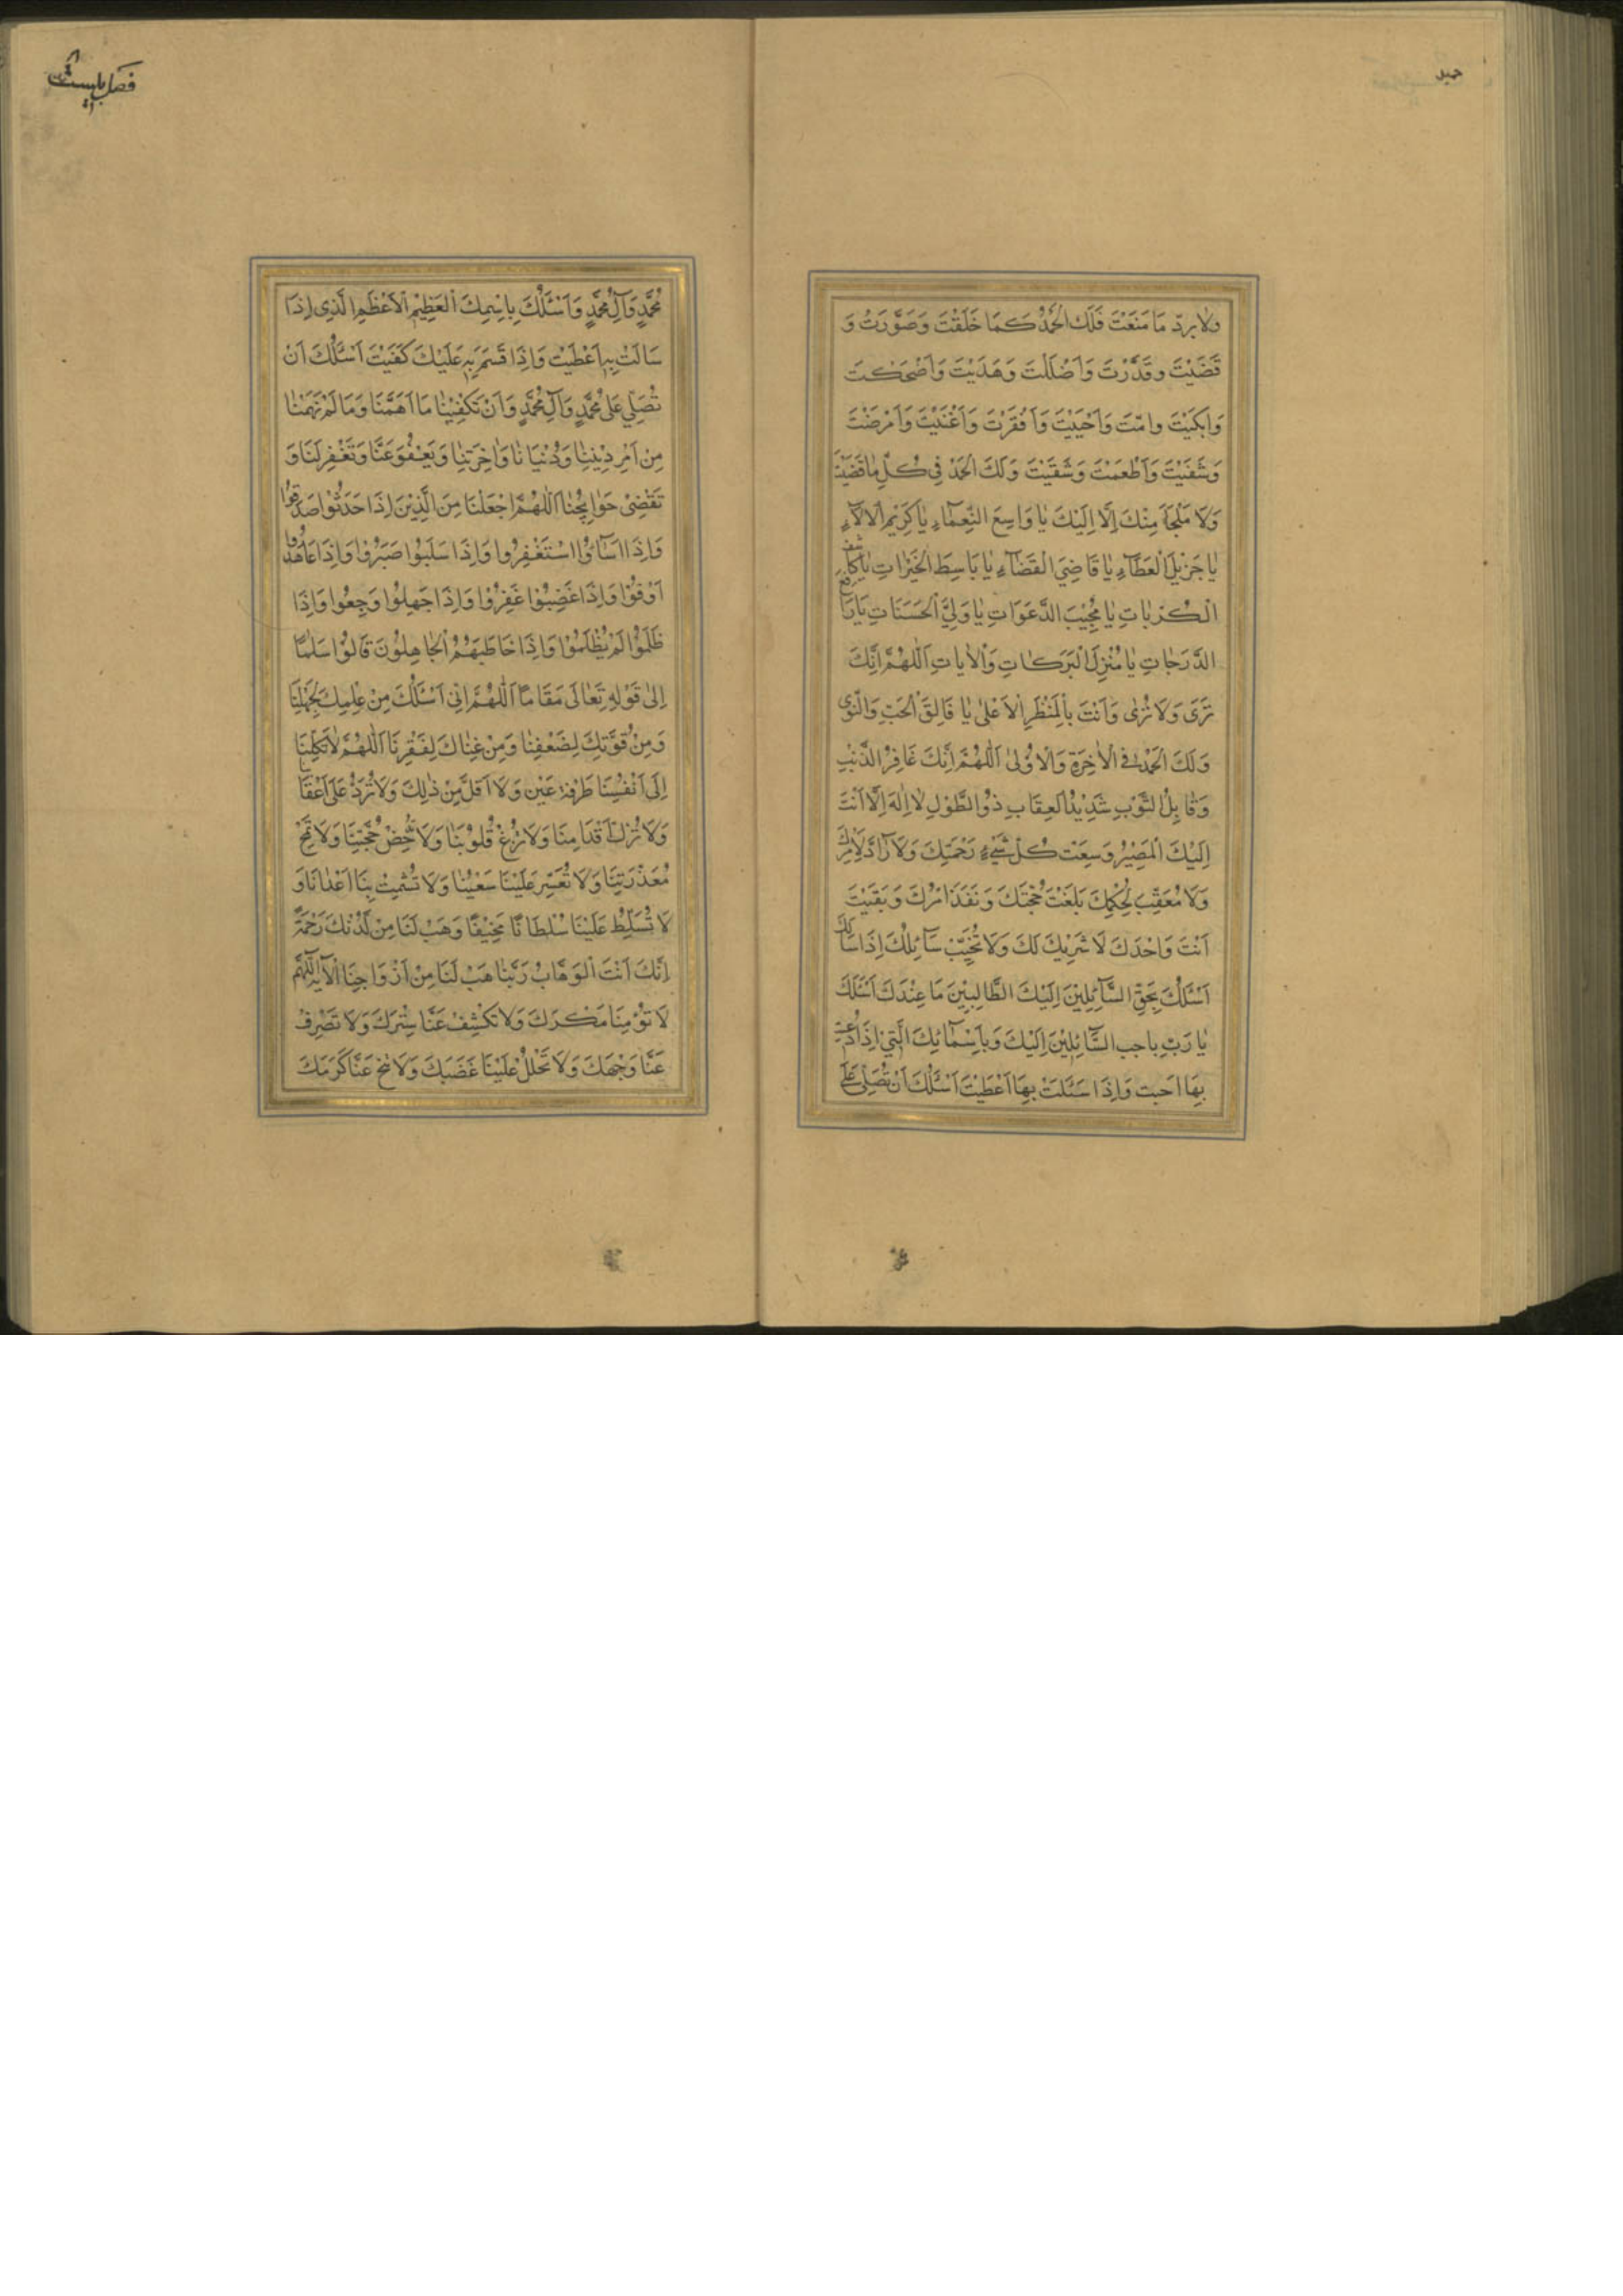 ولا يردّ مَا مَنَعْتَ فَلَكَ الْحَمْدُ كَمَا خَلَقْتَ وَصَوَّرَتْ وَ
قَضَيْتَ وقَدَّرْتَ وَاَضْلَلْتَ وَهَدَيْتَ وَاَضْحَكْتَ
وَابَكَيْتَ وامّتَ وَاَحْيَيْتَ وَاَفْقَرْتَ وَاَغْنَيْتَ وَاَمْرَضْتَ
وَشَفَيْتَ وَاَطْعَمْتَ وَسَقَيْتَ وَلَكَ الْحَمْدُ فِى كُلِّ مٰا قَضَيْتَ
وَلَا مَلْجَاَ مِنْكَ اِلَّا اِلَيْكَ يٰا وَاسِعَ النَّعِمٰآءِ يٰا كَرِيْمَ الْالآءِ
يٰا جَزْيِلَ الْعَطٰآءِ يٰا قَاضِىَ الْقَضٰآءِ يٰا بَاسِطَ الْخَيْرٰاتِ يٰا كٰاشِفَ
الْكُرْبٰاتِ يٰا مُجِيْبَ الدَّعَوَاتِ يٰا وَلِىَّ الْحَسَنَاتِ يَا رَافِعَ
الدَّرَجٰاتِ يٰا مُنْزِلَ الْبَرَكٰاتِ وَالْاٰيٰاتِ اَللّٰهُمَّ اِنَّكَ
تَرَى وَلَا تُرٰى وَاَنْتَ بِالْمَنْظَرِ الْاَعْلىٰ يٰا فَالِقَ الْحَبِّ وَالنَّوٰى
وَلَكَ الْحَمْدُ فِى الْاٰخِرَةِ وَالْاوُلىٰ اَللّٰهُمَّ اِنَّكَ غَافِرُ الذَّنْبِ
وَقٰابِلُ التَّوْبِ شَدِيْدُ الْعِقَابِ ذُو الطَّوْلِ لٰا اِلٰهَ اِلَّا اَنْتَ
اِلَيْكَ الْمَصِيْرُ وَسِعَتْ كُلَّ شَىْءٍ رَحْمَتِكَ وَلَا رٰادَّ لِاَمْرِكَ
وَلَا مُعَقِّبَ لِحُكْمِكَ بَلَغَتْ حُجَّتَكَ وَنَفَذَ اَمْرُكَ وَبَقَيْتَ
اَنْتَ وَاحْدَكَ لَا شَرِيْكَ لَكَ وَلَا تُخَيِّبْ سَآئِلُكَ اِذَا سَاَلَكَ
اَسْئَلُكَ بِحَقِّ السَّآئِلِيْنَ اِلَيْكَ الطَّالِبِيْنَ مَا عِنْدَكَ اَسْئَلُكَ
يٰا رَبِّ باحب السَّآئِلِيْنَ اِلَيْكَ وَبِاَسْمٰآئِكَ الَّتِىْ اِذَا دُعِيْتَ
بِهَا اجبت وَاِذَا سَئَلَتْ بِهَا اَعْطَيْتَ اَسْئَلُكَ اَنْ تُصَلِّىَ عَلَى
فصل بايست
مُحَمَّدٍ وَآلِ مُحَمَّدٍ وَاَسْئَلُكَ بِاِسْمِكَ الْعَظِيْمِ الْاَعْظَمِ الَّذِى اِذَا
سَالَتْ بِهِ اَعْطَيْتَ وَاِذَا قَسَمَ بِهِ عَلَيْكَ كَفَيْتَ اَسْئَلُكَ اَنْ
تُصَلِّىَ عَلىٰ مُحَمَّدٍ وَآلِ مُحَمَّدٍ وَاَنْ تَكْفِيْنٰا مَا اَهَمَّنَا وَمَا لَمْ يَهِمْنٰا
مِنْ اَمْرِ دِيْنِنٰا وَدُنْيَانٰا وَاٰخِرَتِنٰا وَيَعْفُوَ عَنَّا وَتَغْفِرَ لَنَا وَ
تَقْضِىْ حَوٰايِجُنٰا اَللّٰهُمَّ اجْعَلْنَا مِنَ الَّذِيْنَ اِذَا حَدَثُوْا صَدَقُوْا
وَاِذَا اَسَآؤُا اسْتَغْفِرُوا وَاِذَا سَلَبُوا صَبَرُوْا وَاِذَا عَاهَدُوا
اَوْفَوْا وَاِذَا غَضِبُوْا غَفَرُوْا وَاِذَا جَهِلُوْا رَجِعُوا وَاِذَا
ظَلَمُوْا لَمْ يَظْلِمُوْا وَاِذَا خَاطَبَهُمُ الْجٰاهِلُوْنَ قَالُوْا سَلٰمًا
اِلىٰ قَوْلِهِ تَعٰالَى مَقَامًا اَللّٰهُمَّ اِنّى اَسْئَلُكَ مِنْ عِلْمِكَ لِجَهْلِنَا
وَمِنْ قُوَّتِكَ لِضَعْفِنٰا وَمِنْ غِنٰاكَ لِفَقْرِنَا اَللّٰهُمَّ لٰا تَكِلْنَا
اِلَى اَنْفُسِنَا طَرْفَةَ عَيْنٍ وَلَا اَقَلَّ مِنْ ذٰلِكَ وَلَا تُرَدُّ عَلَى اَعْقَابِنَا
وَلَا تُزِلَّ اَقْدَامِنَا وَلَا تُزِغْ قُلُوْبَنٰا وَلَا تُدْحِضْ حُجَّتِنَا وَلَا تَمْحُ
مُعَذْرَتِنَا وَلَا تُعَسِّرْ عَلَيْنَا سَعْيُنٰا وَلَا تُشْمِتْ بِنَا اَعْدٰانَا وَ
لَا تُسَلِّطْ عَلَيْنَا سُلْطَانًا مُخِيْفًا وَهَبْ لَنَا مِنْ لَدُنْكَ رَحْمَةً
اِنَّكَ اَنْتَ الْوَهَّابُ رَبَّنٰا هَبْ لَنَا مِنْ اَزْوَاجِنَا الْاٰيه اللّٰهُمَّ
لَا تُؤْمِنَا مَكْرَكَ وَلَا تَكْشِفْ عَنَّا سِتْرَكَ وَلَا تَصْرِفْ
عَنَّا وَجْهَكَ وَلَا تَحْلُلْ عَلَيْنَا غَضَبَكَ وَلَا تُنَحِّ عَنَّا كَرَمَكَ